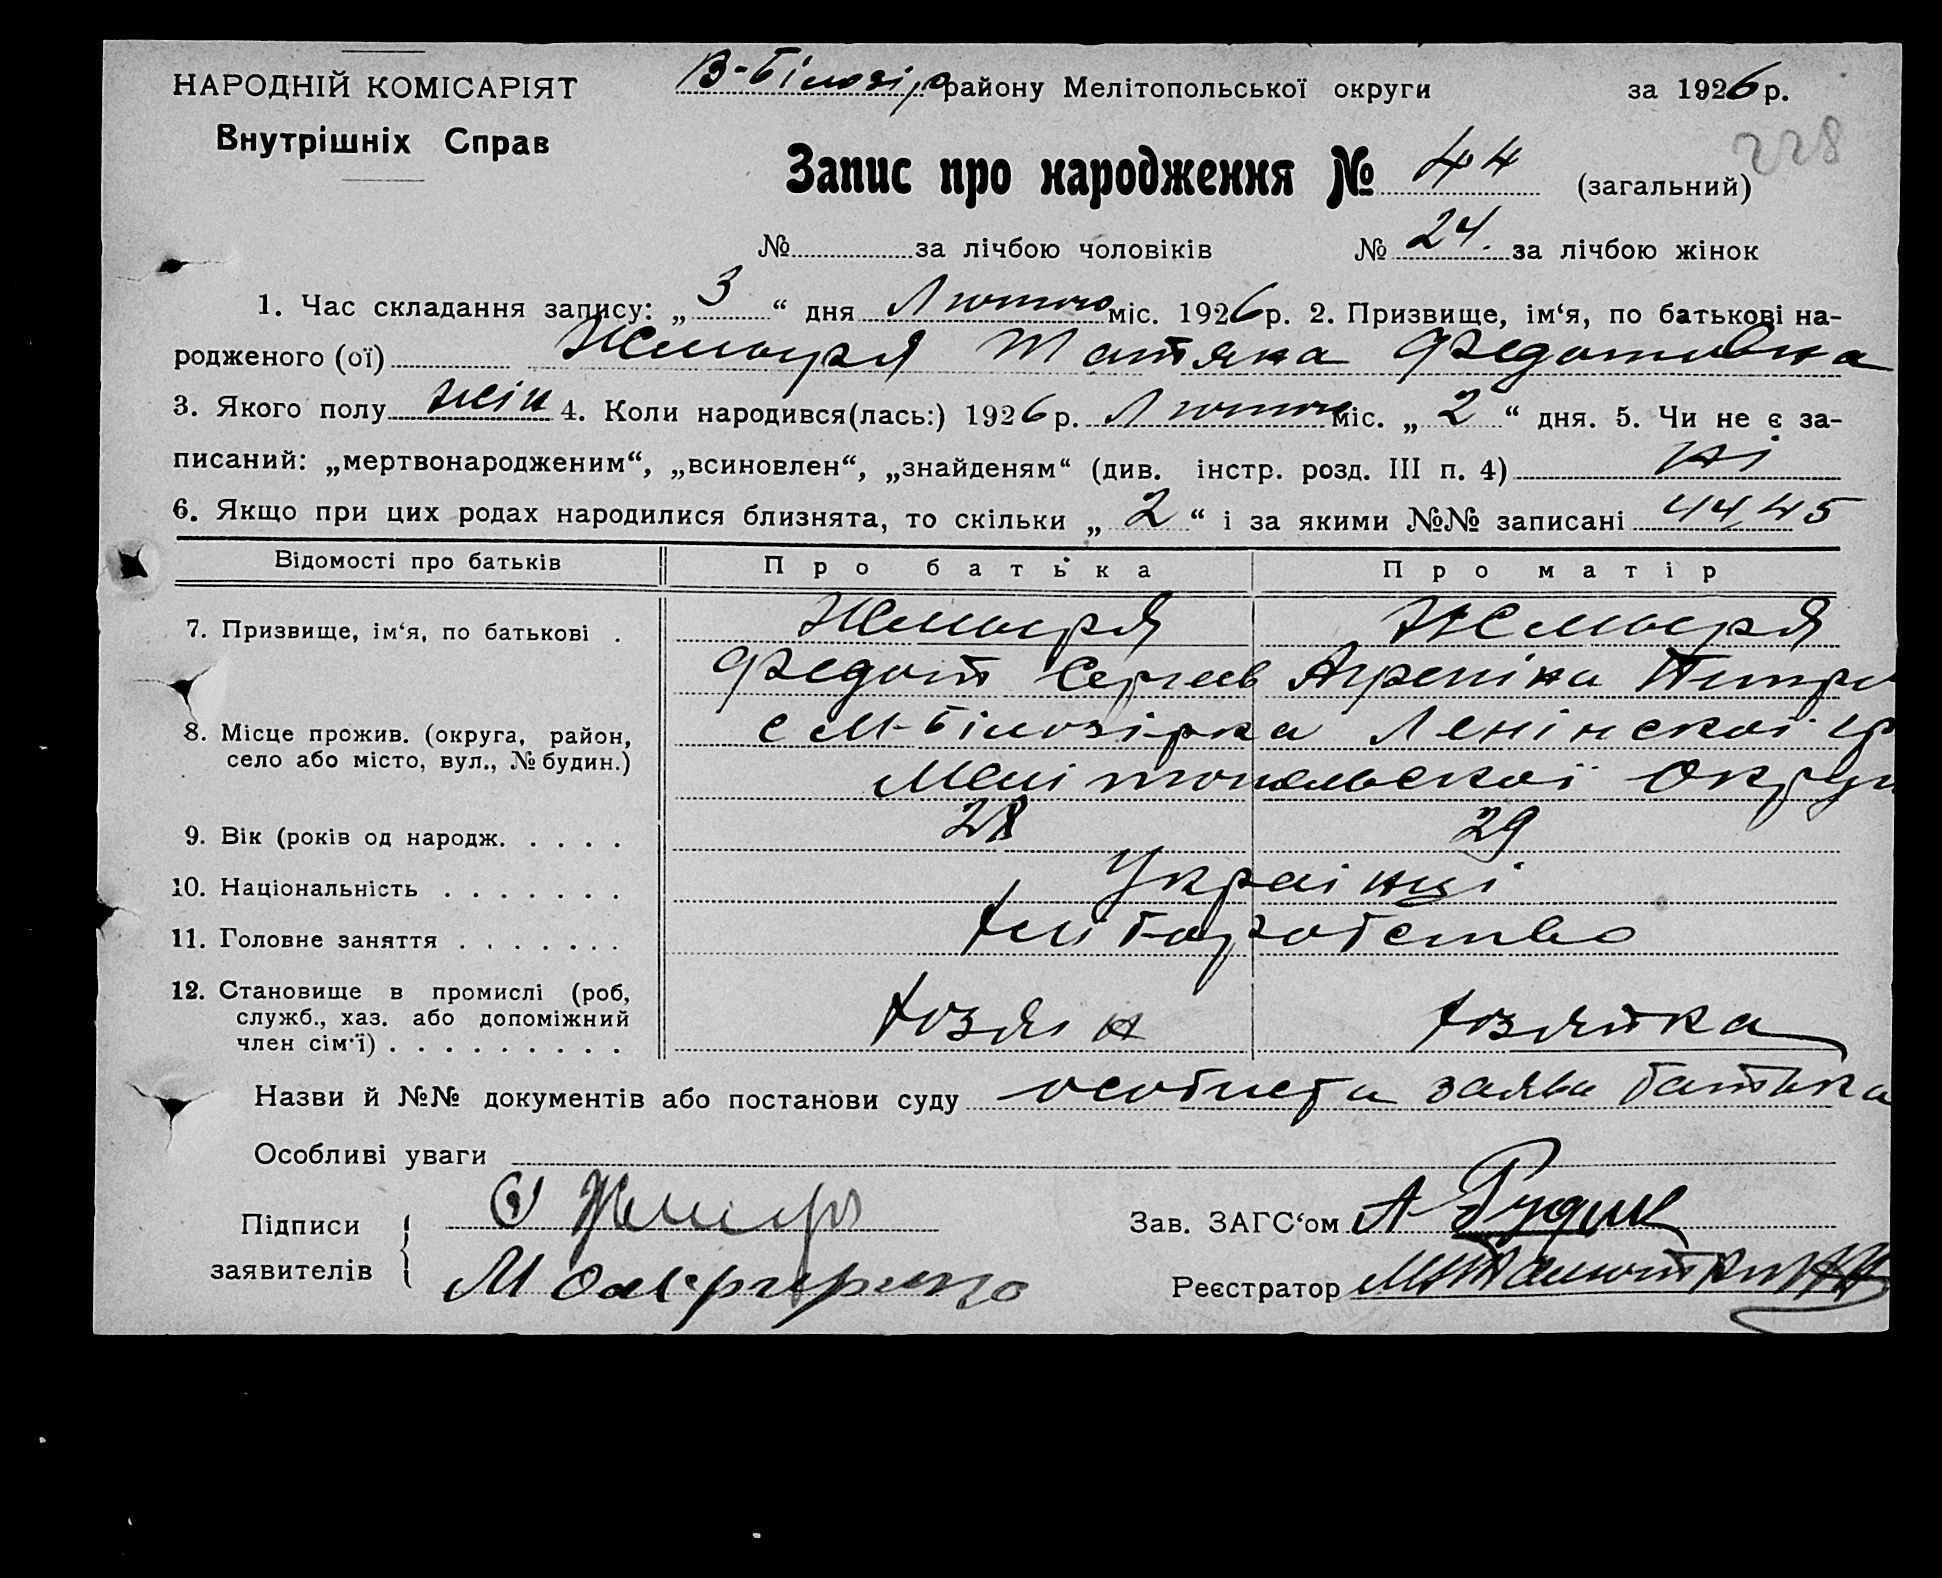 НАРОДНІЙ КОМІСАРІЯТ
Внутрішніх Справ
В-Білозір району Мелітопольської округи за 1926 р.
228
Запис про народження № 44 (загальний)
№ за лічбою чоловіків № 24. за лічбою жінок
1. Час складання запису: „ 3 “ дня Лютого міс. 1926 р. 2. Призвище, ім‘я, по батькові на-
родженого (ої) Жмыря Татяна Федотовна
3. Якого полу жін 4. Коли народився(лась:) 1926 р. Лютого міс. „ 2 “ дня. 5. Чи не є за-
писаний: „мертвонародженим“, „всиновлен“, „знайденям“ (див. інстр. розд. III п. 4) ні
6. Якщо при цих родах народилися близнята, то скільки „ 2 “ і за якими №№ записані 44, 45
Відомості про батьків Про батька Про матір
7. Призвище, ім‘я, по батькові . Жмыря Жмыря
Федот Сергеев Агрепіна Петро
8. Місце прожив. (округа, район, с М-Білозірка Ленінскоі
село або місто, вул., № будин.) Мелітопольскоі Округи
9. Вік (років од народж. . . . . 28 29
10. Національність . . . . . . . Украінці
11. Головне заняття . . . . . . . хліборобство
12. Становище в промислі (роб, хозяін хозяйка
служб., хаз. або допоміжний
член сім‘ї) . . . . . . . . .
Назви й №№ документів або постанови суду особиста заява батька
Особливі уваги
Підписи Зав. ЗАГС‘ом А Рудик
заявителів Реєстратор